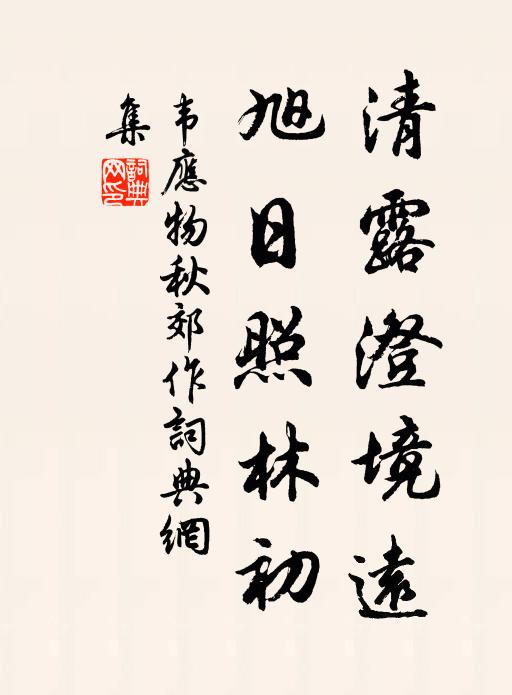 清露澄境遠
旭日照林初
韦應物秋郊作詞典網
集
詞典
网印